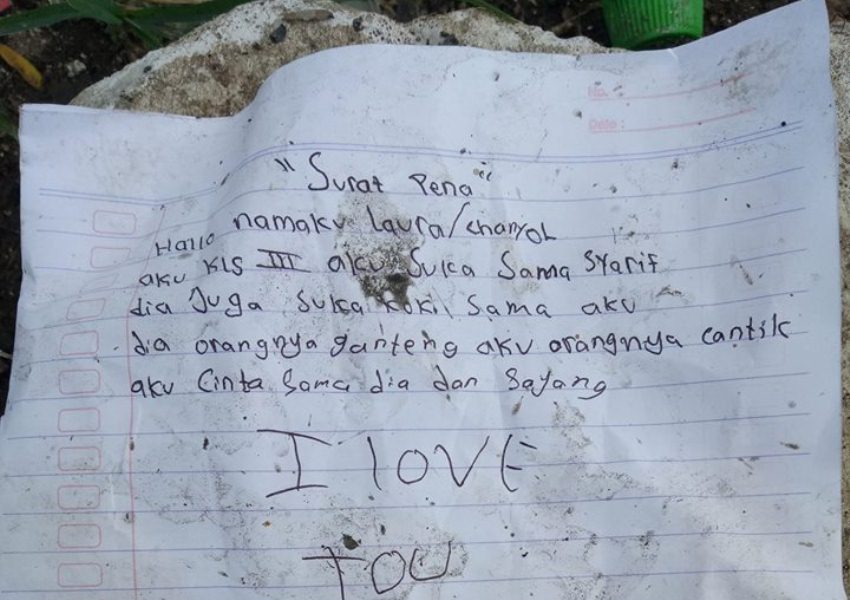 No.
Date :
"Surat Pena"
Hallo namaku Laura/chanyol
aku KLS III aku Suka Sama Syarif
dia Juga Suka kok Sama aku
dia orangnya ganteng aku orangnya cantik
aku Cinta Sama dia dan Sayang
I LOVE
YOU